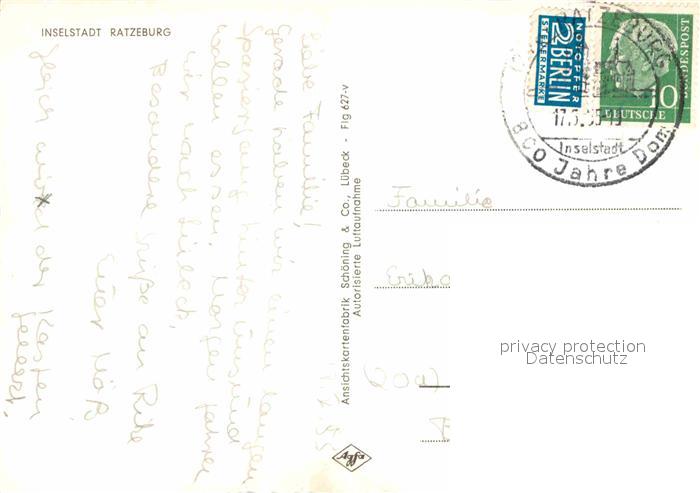 INSELSTADT RATZEBURG
Liebe Familie!
Gerade haben wir einen langen
Spaziergang hinter uns und
wollen essen. Morgen fahren
wir nach
Besondere Grüße an
Euer
gleich der Kasten
geleert.
17.5.55
Ansichtskartenfabrik Schöning & Co., Lübeck - Flg 627-v
Autorisierte Luftaufnahme
NOTOPFER
2 BERLIN
STEUERMARKE
BUNDESPOST
10
DEUTSCHE
RATZEBURG
Inselstadt
800 Jahre Dom
Familie
(20a)
privacy protection
Datenschutz
Agfa